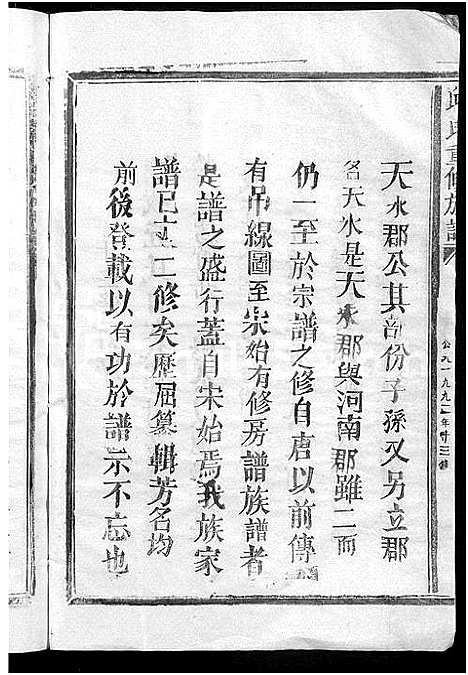 邱氏重修族譜
公元一九九二年
天水郡公其部份子孫又另立郡
名天水是天水郡與河南郡雖二而
仍一至於宗譜之修自唐以前傳
有吊線圖至宋始有修房譜族譜者
是譜之盛行蓋自宋始焉我族家
譜已立十二修矣歷屆纂輯芳名均
前後登載以有功於譜示不忘也